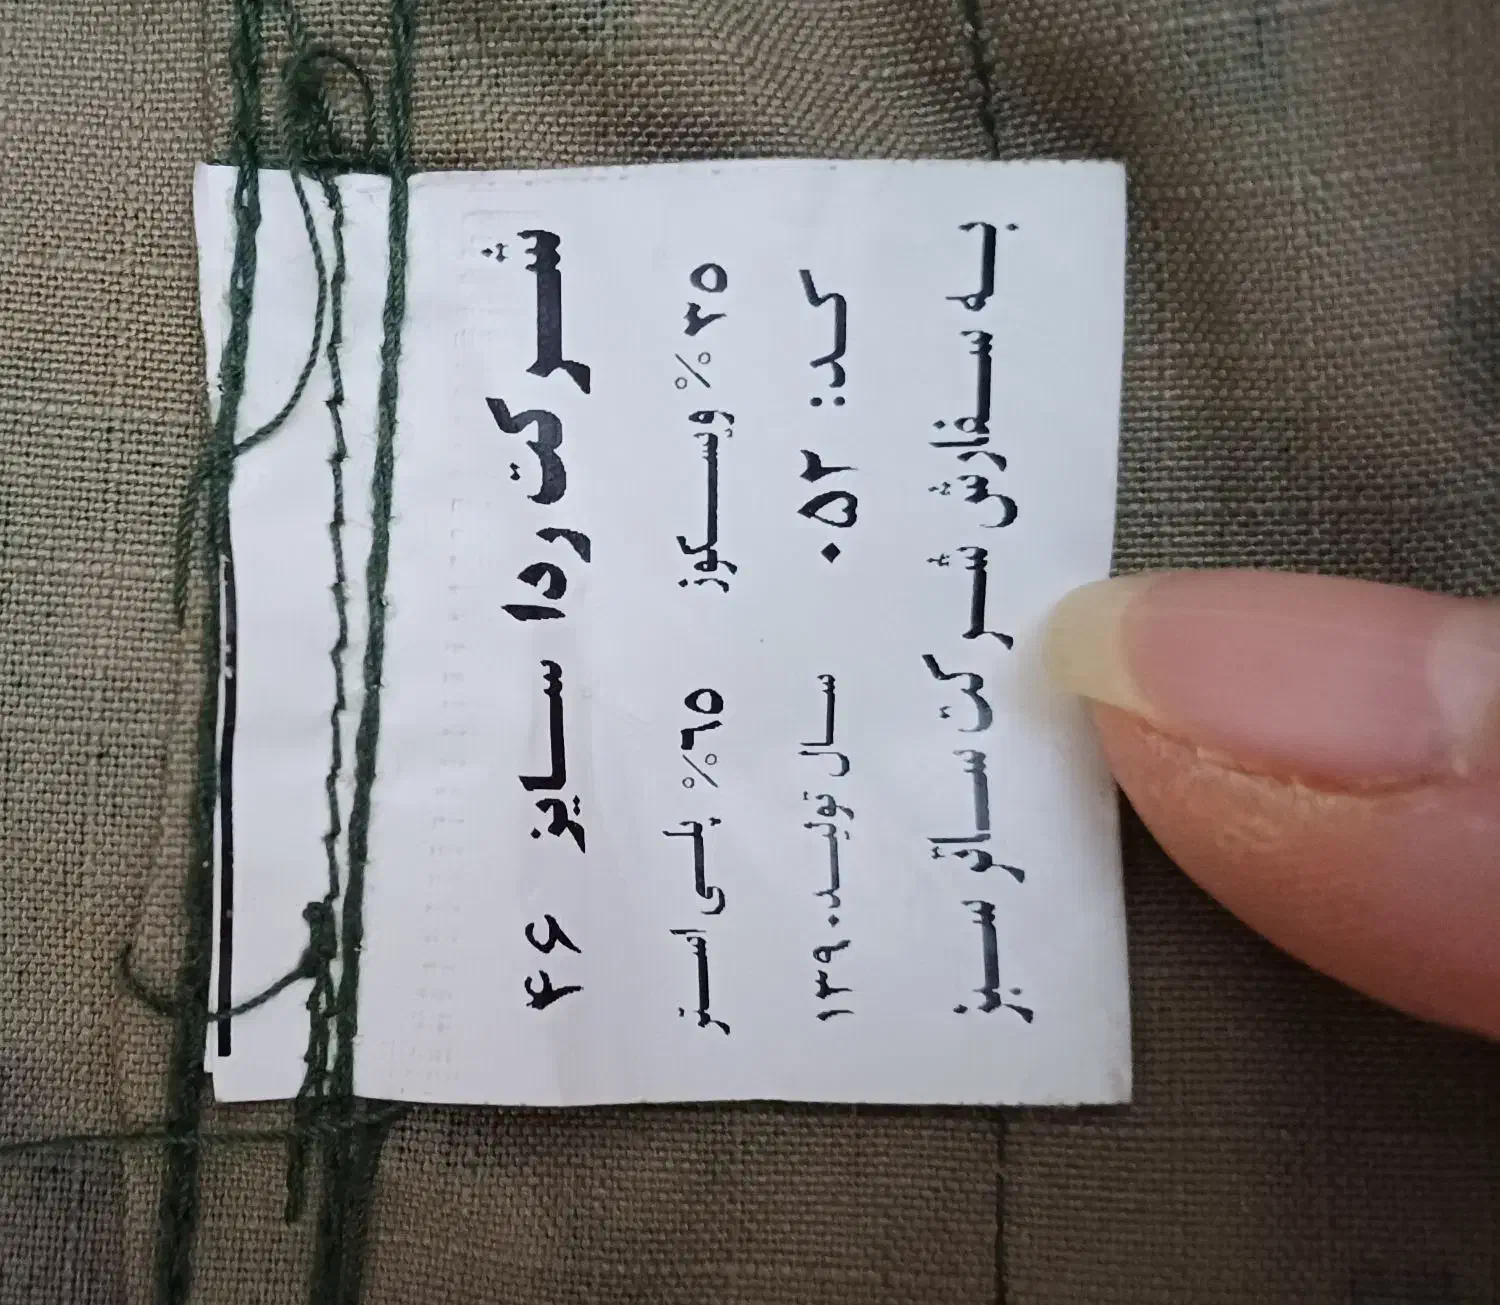 شرکت ردا سایز ۴۶
۳۵٪ ویسکوز ۶۵٪ پلی استر
کد: ۰۵۲ سال تولید ۱۳۹۰
به سفارش شرکت ساتر سبز